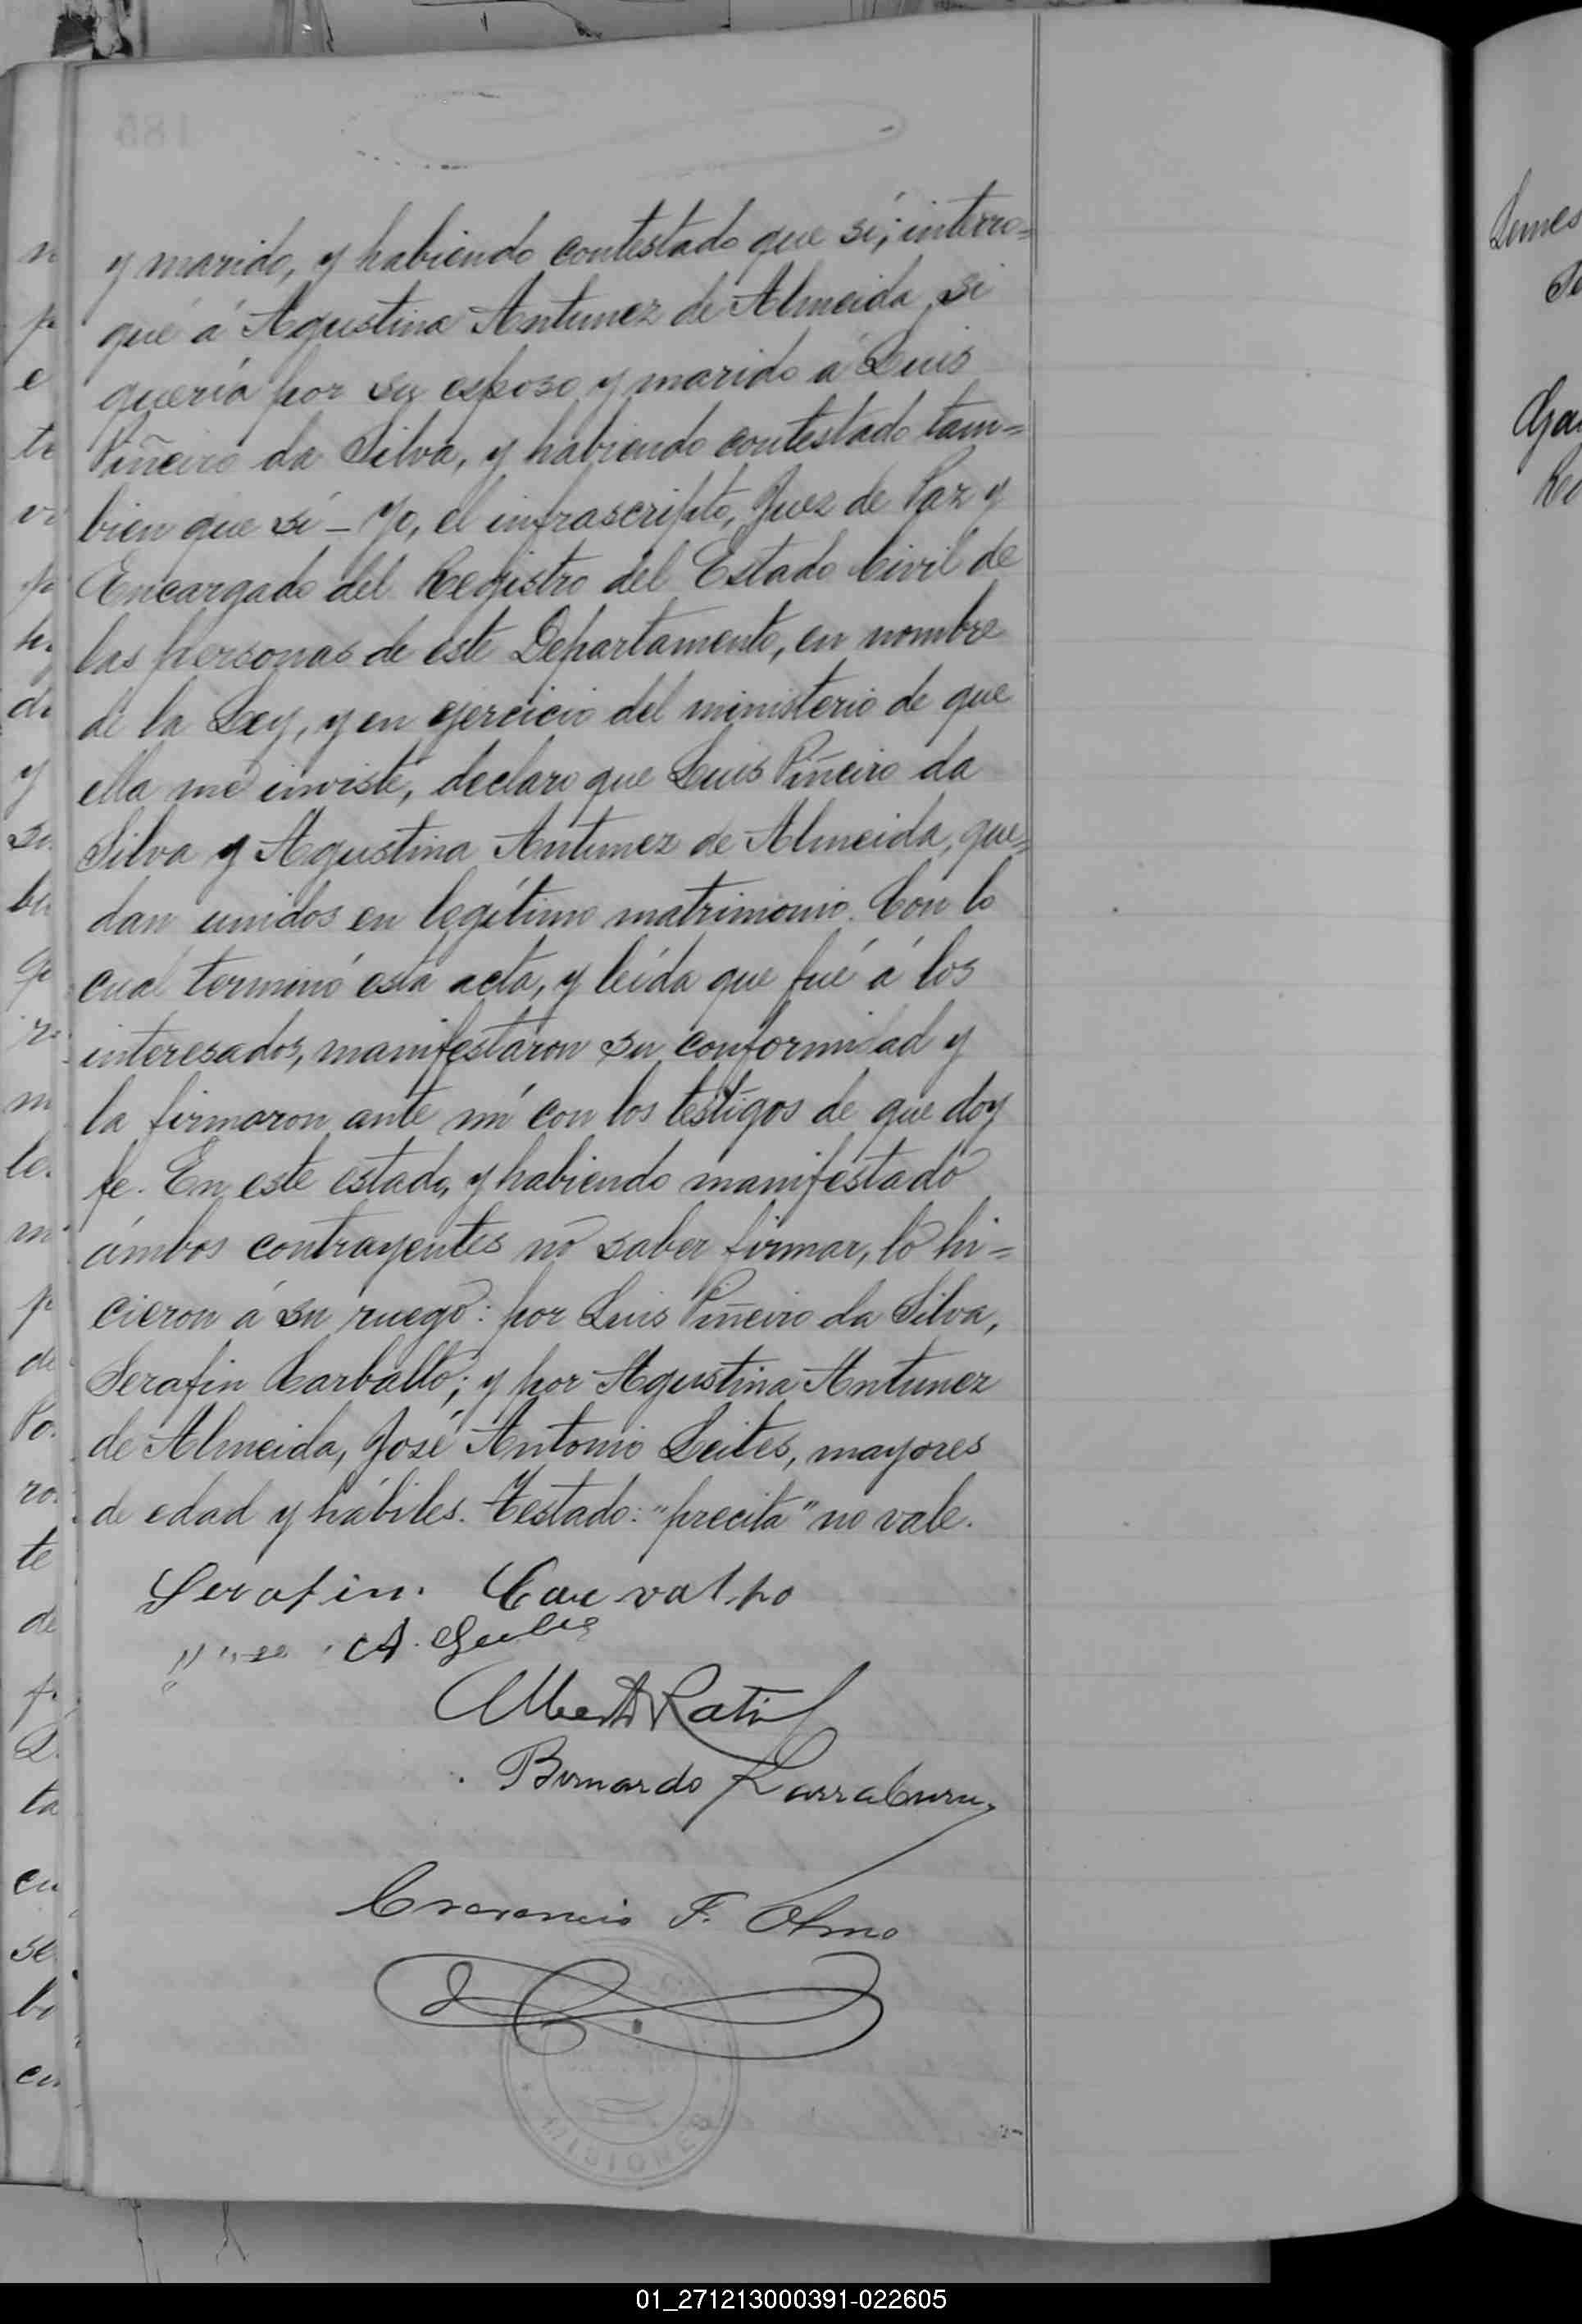 y marido, y habiendo contestado que sí; interro=
gué á Agustina Antunez de Almeida si
quería por su esposo y marido á Luis
Piñeiro da Silva, y habiendo contestado tam=
bien que sí - Yo, el infrascripto, Juez de Paz y
Encargado del Registro del Estado Civil de
las personas de este Departamento, en nombre
de la Ley, y en ejercicio del ministerio de que
ella me inviste, declaro que Luis Piñeiro da
Silva y Agustina Antunez de Almeida, que=
dan unidos en legítimo matrimonio. Con lo
cual terminó esta acta, y leída que fué á los
interesados, manifestaron su conformidad y
la firmaron ante mí con los testigos de que doy
fe. En este estado, y habiendo manifestado
ámbos contrayentes no saber firmar, lo hi=
cieron á su ruego: por Luis Piñeiro da Silva,
Serafin Carballo; y por Agustina Antunez
de Almeida, José Antonio Leites, mayores
de edad y hábiles. Testado: "precita" no vale.
Serafin. Carvalho
A.
Bernardo Larraburu
F. Olmo
MISIONES
01_271213000391-022605